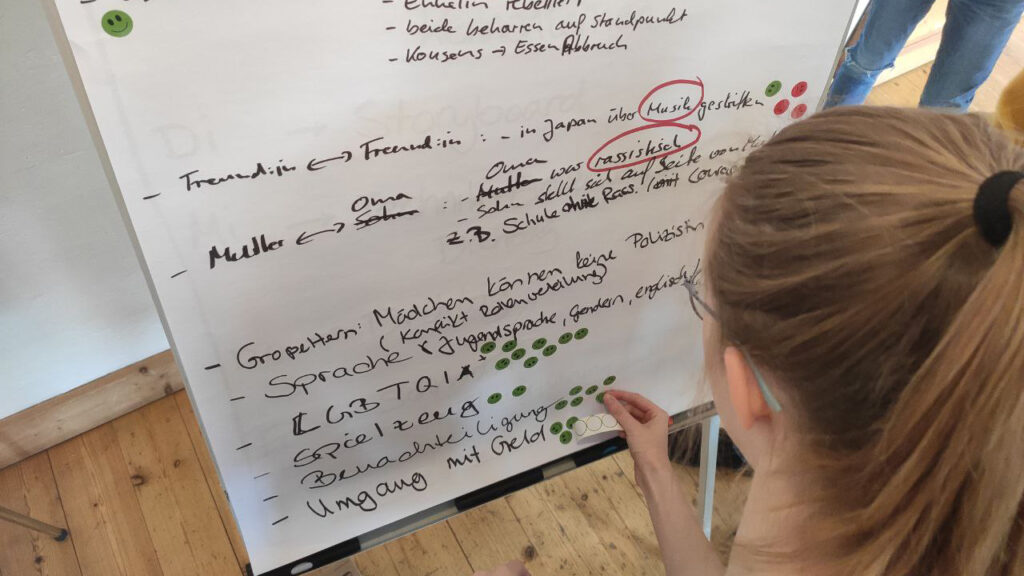 - Enkelin rebelliert
- beide beharren auf Standpunkt
- Konsens → Essen Abbruch
- Freund:in ↔ Freund:in : - in Japan über Musik gestritten
Oma Oma
- Mutter ↔ Sohn : - Mutter war rassistisch
- Sohn stellt sich auf Seite von
z.B. Schule ohne Rass. / mit
- Großeltern: Mädchen können keine Polizistin
(Konflikt Rollenverteilung)
- Sprache (Jugendsprache, Gendern, englisch
- LGBTQIA+
- Spielzeug
- Benachteiligung
- Umgang mit Geld